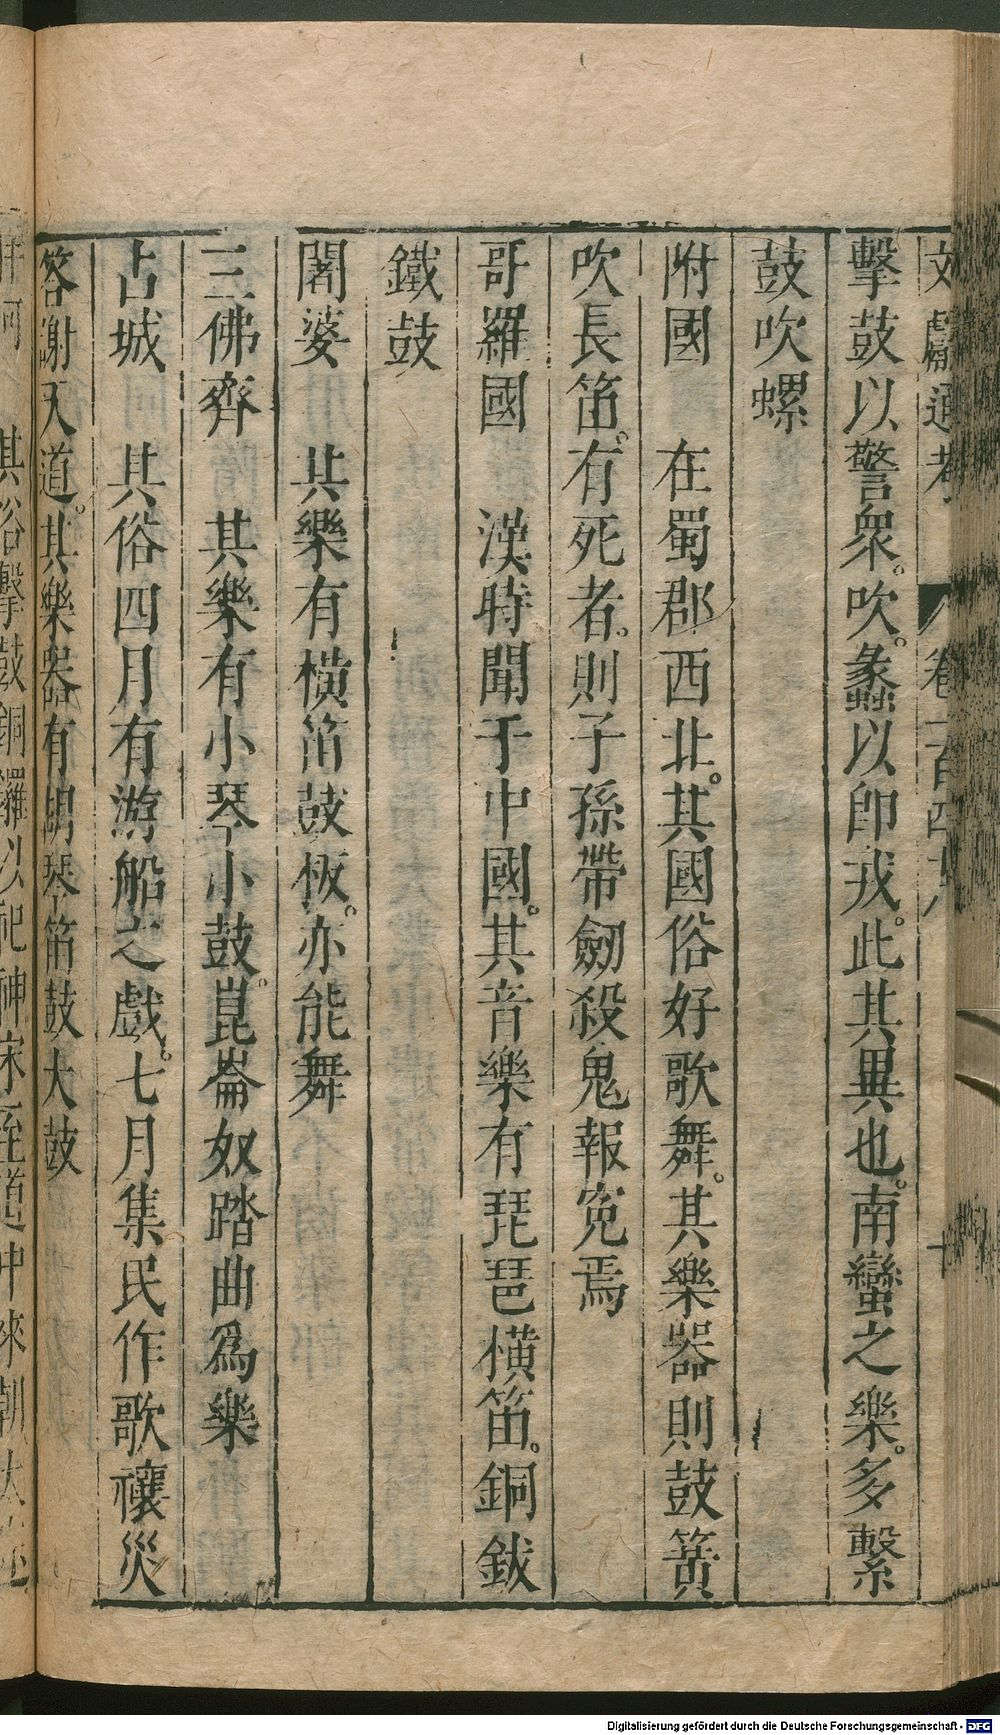 文獻通考 卷一百四十八 十
擊鼓以警衆。吹。蠡以即戎。此其異也。南蠻之樂。多繫
鼓吹螺
附國 在蜀郡西北。其國俗好歌舞。其樂器則鼓簧
吹長笛。有死者。則子孫帶劒殺鬼報寃焉
哥羅國 漢時聞于中國。其音樂有琵琶橫笛。銅鈸
鐵鼓
闍婆 其樂有橫笛鼓板。亦能舞
三佛齊 其樂有小琴小鼓。崑崙奴踏曲爲樂
占城 其俗四月有游船之戲。七月集民作歌禳災
答謝天道。其樂器有胡琴笛鼓大鼓
其俗擊鼓銅鑼以祀神宋至道中來朝太
Digitalisierung gefördert durch die Deutsche Forschungsgemeinschaft - DFG